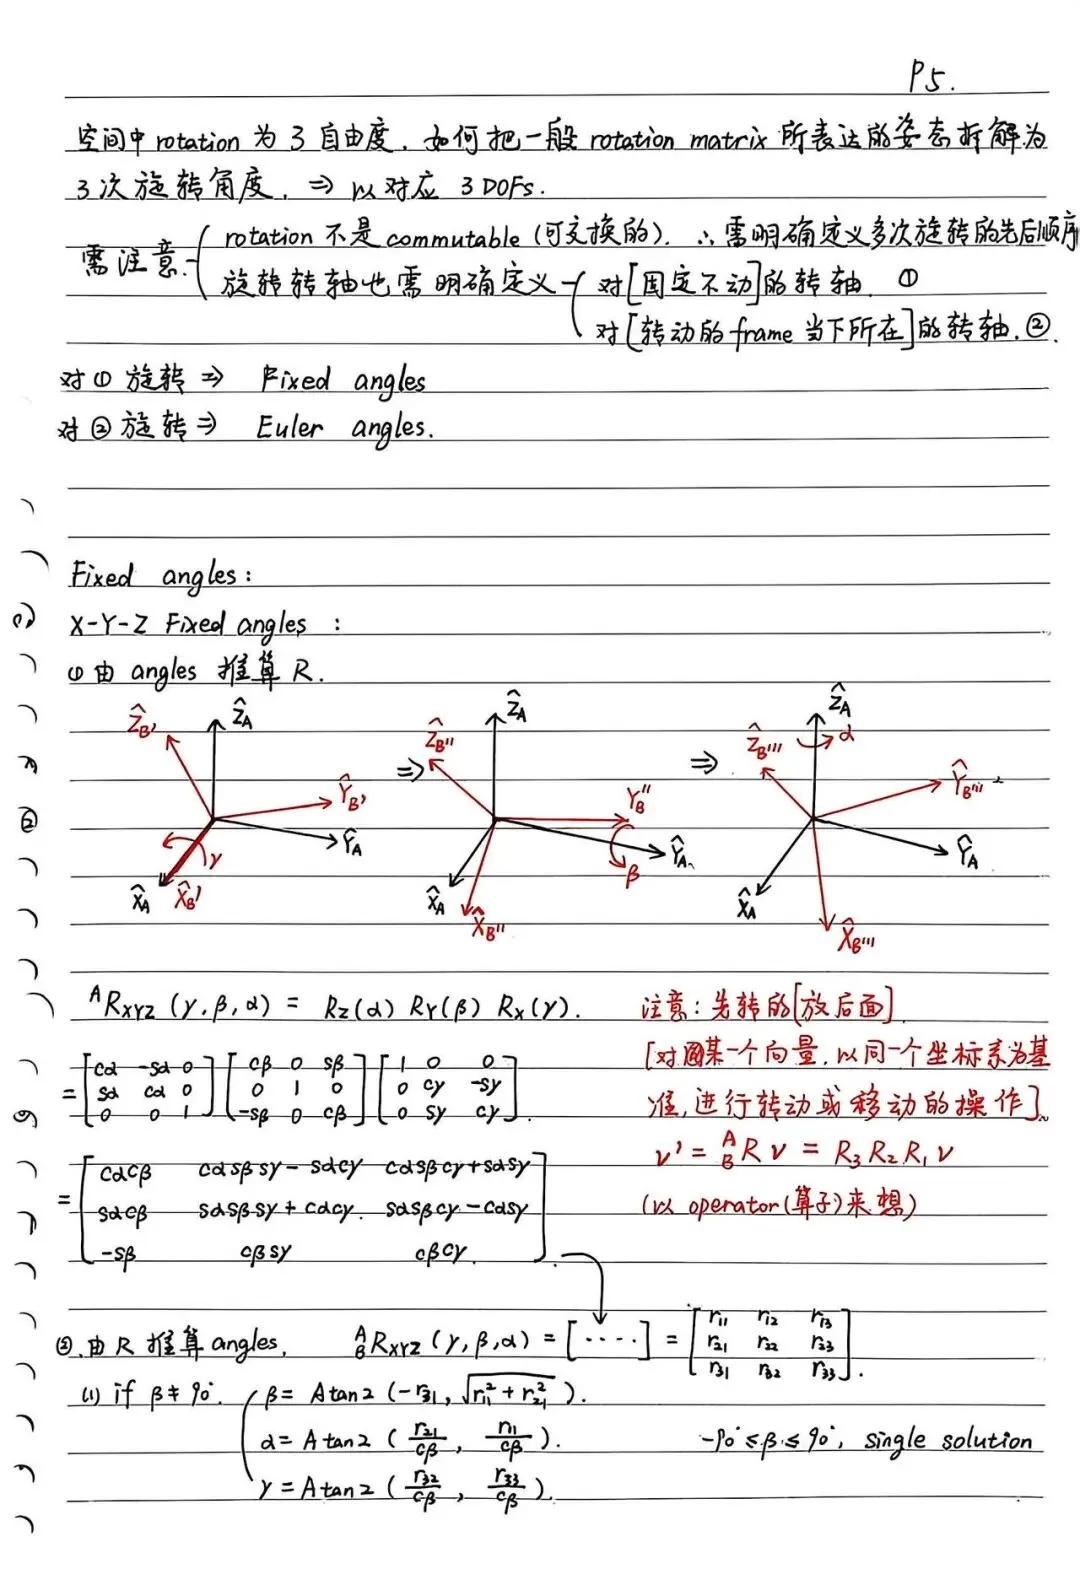 P5.
空间中rotation 为 3 自由度. 如何把一般 rotation matrix 所表达的姿态拆解为
3次旋转角度. ⇒ 以对应 3 DOFs.
需注意. { rotation 不是 commutable (可交换的). ∴需明确定义多次旋转的先后顺序
旋转转轴也需明确定义 { 对[固定不动]的转轴. ①
对[转动的 frame 当下所在]的转轴. ②.
对①旋转 ⇒ Fixed angles
对②旋转 ⇒ Euler angles.
Fixed angles:
X-Y-Z Fixed angles :
① 由 angles 推算 R.
Ẑ_B' Ẑ_A Ŷ_B' Ŷ_A γ X̂_A X̂_B'
⇒ Ẑ_B'' Ẑ_A Ŷ_B'' Ŷ_A β X̂_A X̂_B''
⇒ Ẑ_B''' Ẑ_A α Ŷ_B''' Ŷ_A X̂_A X̂_B'''
ᴬR_XYZ (γ, β, α) = R_Z(α) R_Y(β) R_X(γ).
= [cα -sα 0; sα cα 0; 0 0 1] [cβ 0 sβ; 0 1 0; -sβ 0 cβ] [1 0 0; 0 cγ -sγ; 0 sγ cγ].
= [cαcβ cαsβsγ-sαcγ cαsβcγ+sαsγ
sαcβ sαsβsγ+cαcγ. sαsβcγ-cαsγ
-sβ cβsγ cβcγ.].
注意: 先转的[放后面].
[对某一个向量, 以同一个坐标系为基
准, 进行转动或移动的操作].
v' = ᴬ_B R v = R₃ R₂ R₁ v
(以 operator(算子)来想)
②. 由 R 推算 angles. ᴬ_B R_XYZ (γ, β, α) = [····] = [r11 r12 r13; r21 r22 r23; r31 r32 r33].
(1) if β ≠ 90°. { β = Atan2 (-r31, √(r11² + r21²)).
α = Atan2 (r21/cβ, r11/cβ). -90° ≤ β ≤ 90°, single solution
γ = Atan2 (r32/cβ, r33/cβ).